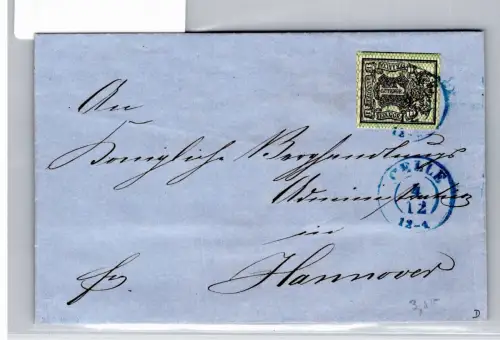 An
Königliche Berghandlungs
Administration
in
fr. Hannover
CELLE
4
12
12-1
12-
D